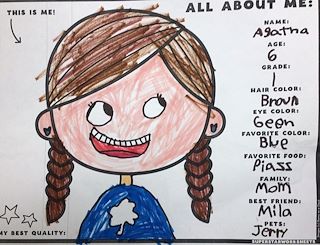 THIS IS ME!
ALL ABOUT ME:
NAME:
Agatha
AGE:
6
GRADE:
1
HAIR COLOR:
Broun
EYE COLOR:
Geen
FAVORITE COLOR:
Blue
FAVORITE FOOD:
Piass
FAMILY:
Mom
BEST FRIEND:
Mila
PETS:
Jerry
MY BEST QUALITY:
SUPERSTARWORKSHEETS